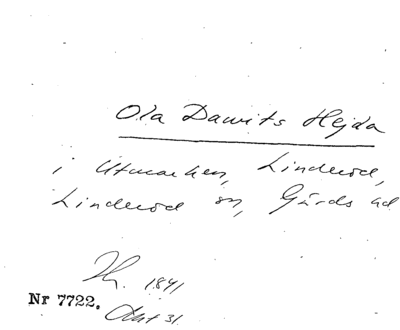 Ola Dawits Hejda
i Utmarken, Linderöd,
Linderöd sn, Gärds hd
1841
Nr 7722. Akt 31.